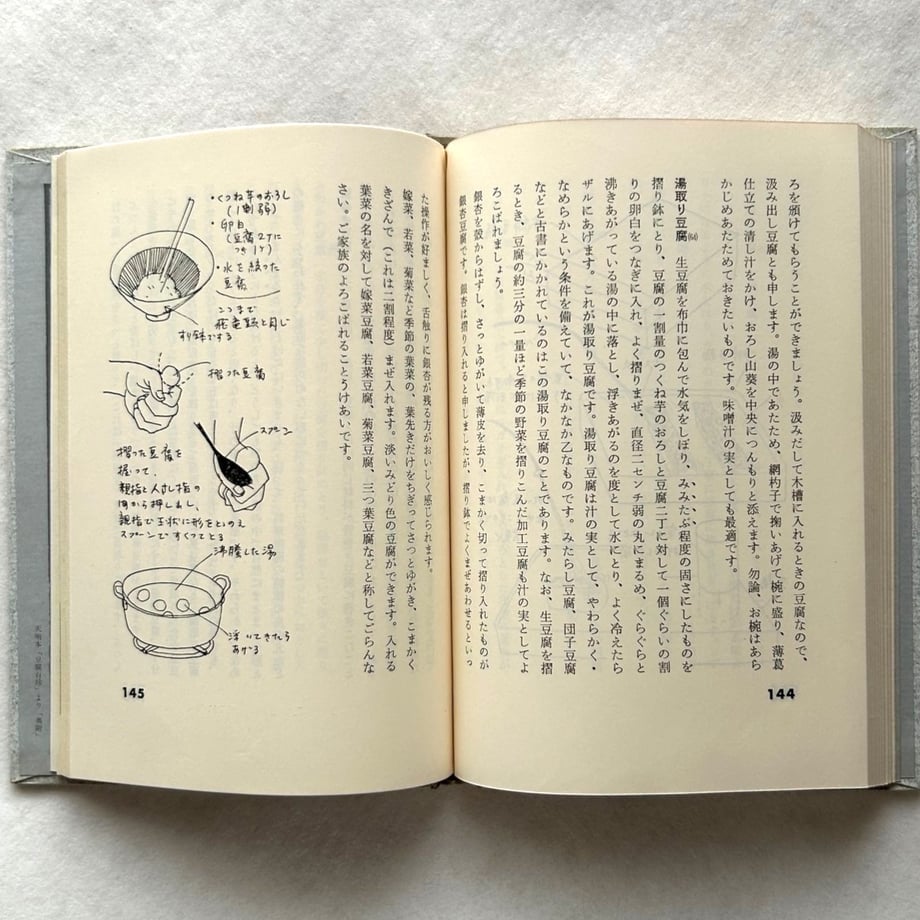 ろを頒けてもらうことができましょう。汲みだして木槽に入れるときの豆腐なので、
汲み出し豆腐とも申します。湯の中であたため、網杓子で掬いあげて椀に盛り、薄葛
仕立ての清し汁をかけ、おろし山葵を中央につんもりと添えます。勿論、お椀はあら
かじめあたためておきたいものです。味噌汁の実としても最適です。
湯取り豆腐(64) 生豆腐を布巾に包んで水気をしぼり、みみたぶ程度の固さにしたものを
摺り鉢にとり、豆腐の一割量のつくね芋のおろしと豆腐二丁に対して一個ぐらいの割
りの卵白をつなぎに入れ、よく摺りまぜ、直径二センチ弱の丸にまるめ、ぐらぐらと
沸きあがっている湯の中に落とし、浮きあがるのを度として水にとり、よく冷えたら
ザルにあげます。これが湯取り豆腐です。湯取り豆腐は汁の実として、やわらかく・
なめらかという条件を備えていて、なかなか乙なものです。みたらし豆腐、団子豆腐
などと古書にかかれているのはこの湯取り豆腐のことであります。なお、生豆腐を摺
るとき、豆腐の約三分の一量ほど季節の野菜を摺りこんだ加工豆腐も汁の実としてよ
ろこばれましょう。
銀杏を殻からはずし、さっとゆがいて薄皮を去り、こまかく切って摺り入れたものが
銀杏豆腐です。銀杏は摺り入れると申しましたが、摺り鉢でよくまぜあわせるといっ
144
た操作が好ましく、舌触りに銀杏が残る方がおいしく感じられます。
嫁菜、若菜、菊菜など季節の葉菜の、葉先きだけをちぎってさっとゆがき、こまかく
きざんで（これは二割程度）まぜ入れます。淡いみどり色の豆腐ができます。入れる
葉菜の名を対して嫁菜豆腐、若菜豆腐、菊菜豆腐、三つ葉豆腐などと称してごらんな
さい。ご家族のよろこばれることうけあいです。
・つくね芋のおろし
（1割弱）
・卵白
（豆腐2丁に
つき1ヶ）
・水を絞った
豆腐
ここまで
飛竜頭と同じ
すり鉢でする
摺った豆腐
スプーン
摺った豆腐を
握って、
親指と人さし指の
間から押し出し、
親指で玉状に形をととのえ
スプーンですくってとる
沸騰した湯
浮いてきたら
あげる
145
天明本『豆腐百珍』より